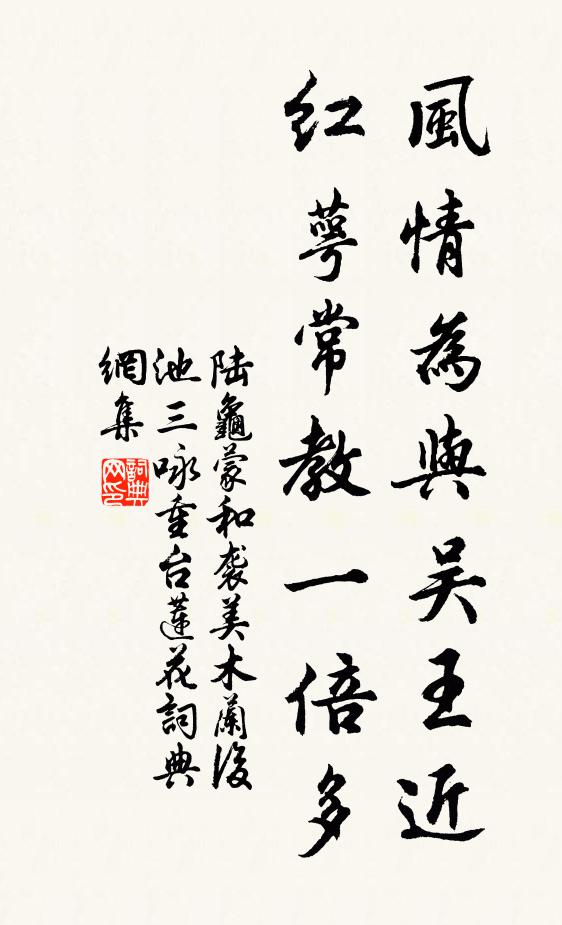 風情為與吴王近
紅萼常教一倍多
陆龜蒙和袭美木蘭後
池三咏重台蓮花詞典
網集
詞典网印